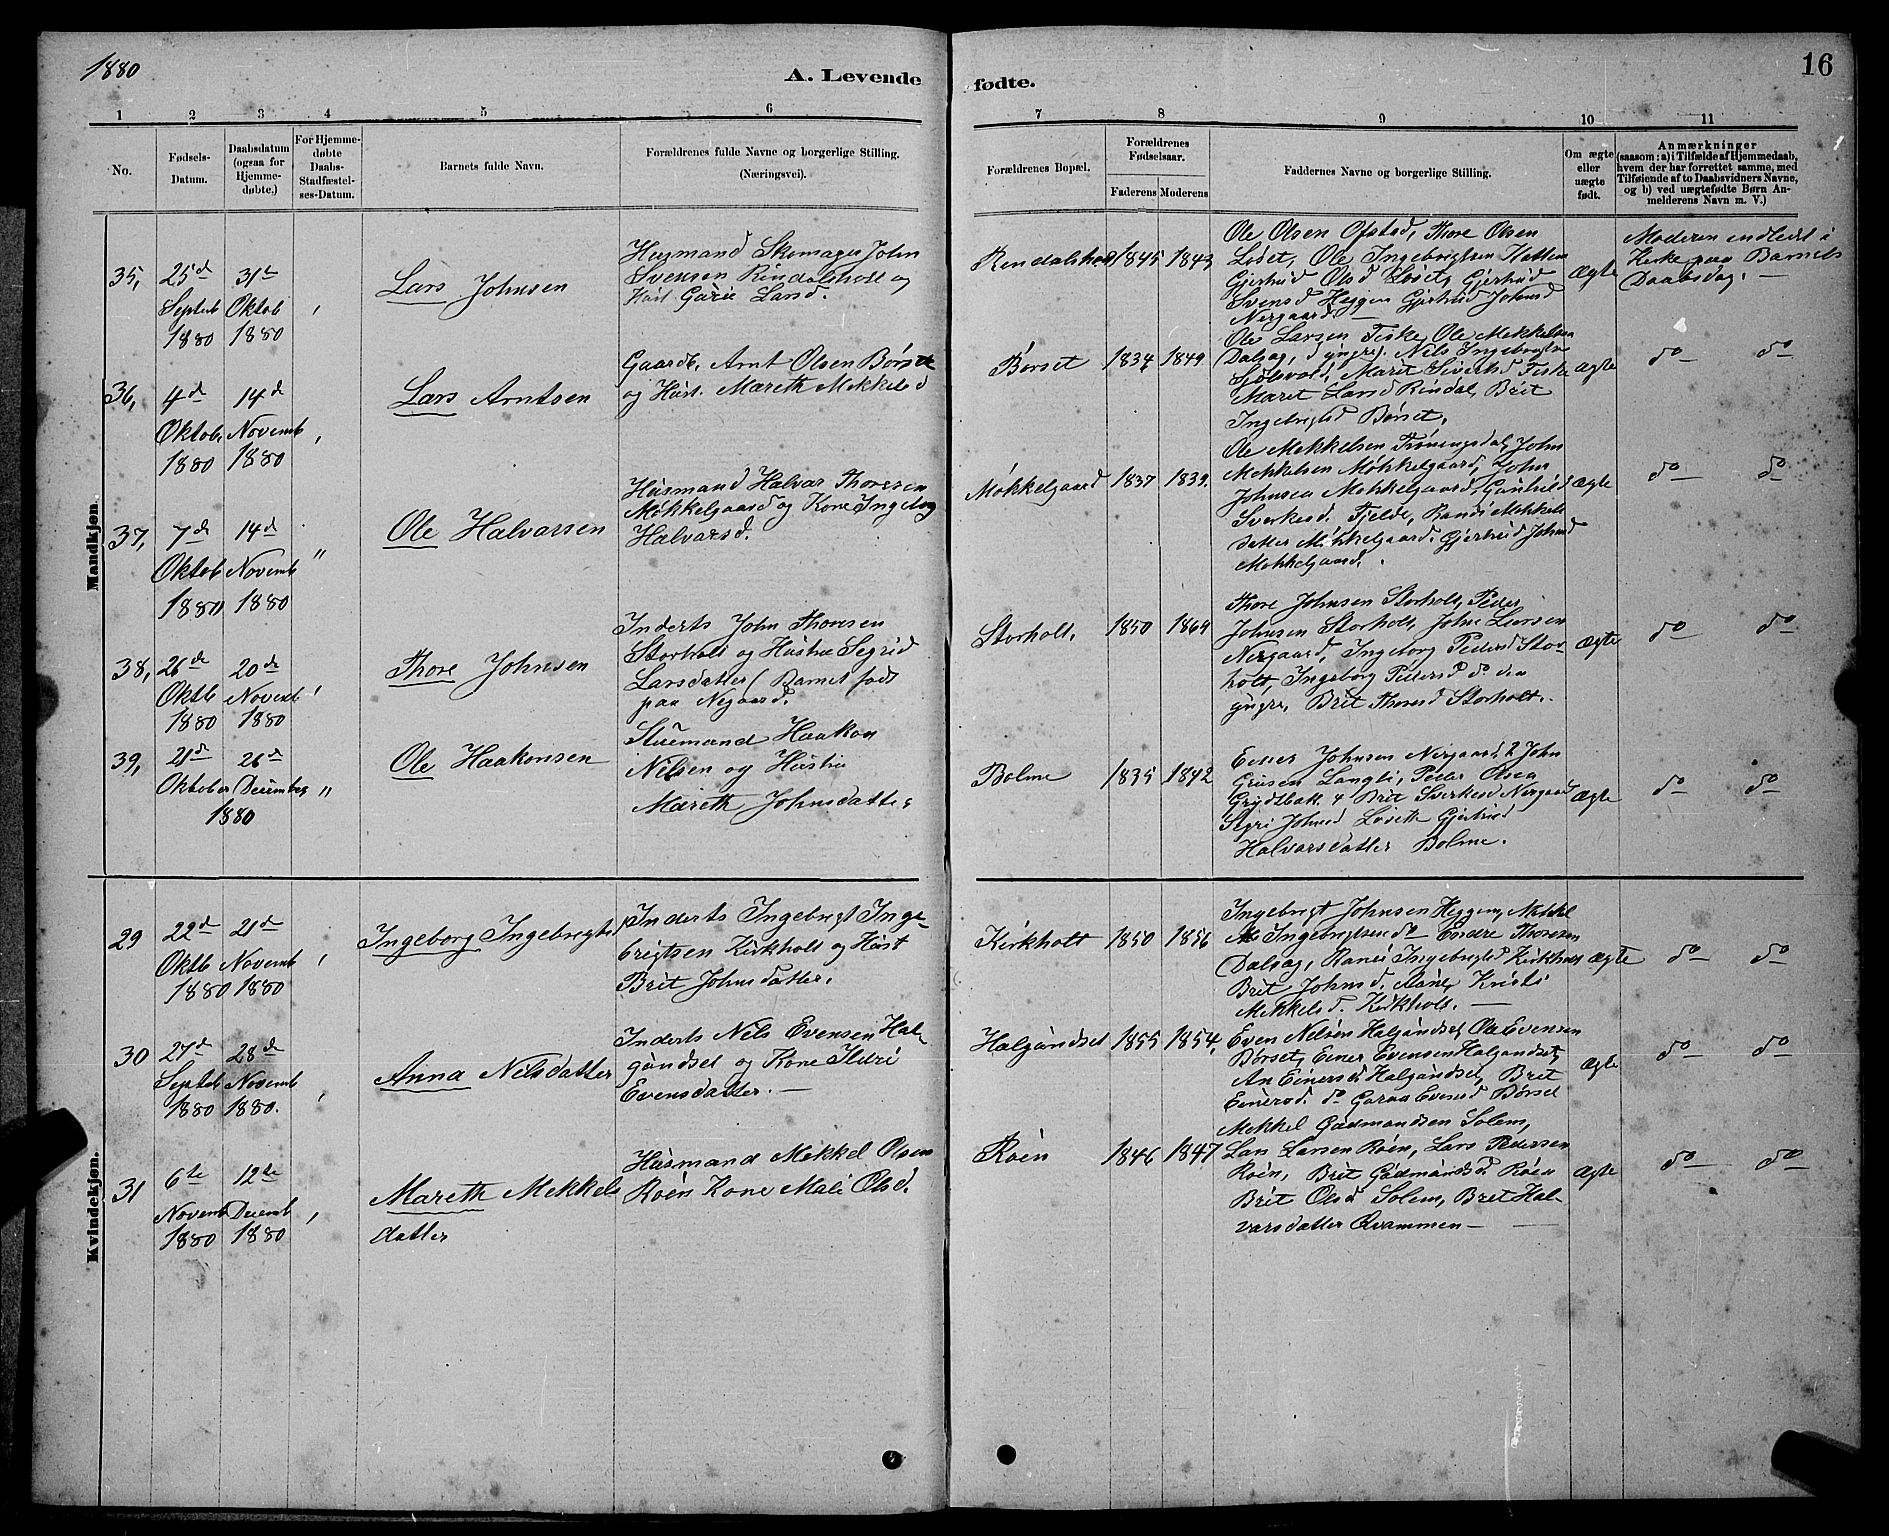 1880
A. Levende
fødte.
16
1 2 3 4 5 6 7 8 9 10 11
No.
Fødsels-
Datum.
Daabsdatum
(ogsaa for
Hjemme-
døbte.)
For Hjemme-
døbte
Daabs-
Stadfæstel-
ses-Datum.
Barnets fulde Navn.
Forældrenes fulde Navne og borgerlige Stilling.
(Næringsvei).
Forældrenes Bopæl.
Forældrenes
Fødselsaar.
Faderens Moderens
Faddernes Navne og borgerlige Stilling.
Om ægte
eller
uægte
født.
Anmærkninger
(saasom: a) i Tilfælde af Hjemmedaab,
hvem der har forrettet samme, med
Tilføiende af to Daabsvidners Navne,
og b) ved uægtefødte Børn An-
melderens Navn m. V.)
Mandkjøn.
35,
25de
Septeb
1880
31te
Oktob
1880
Lars Johnsen
Husmand Skomager John
Svensen Rindalsholt og
Hust Larsd.
1845 1843
Ole Olsen Ofstad, Thore Olsen
Løset, Ole Ingebrigtsen Hetten
Gjertrud Olsd Løset, Gjertrud
Svensd Heggen Gjertrud Johnsd
Nergaard —
Ægte
Moderen indledet i
Kirke paa Barnets
Daabsdag. —
36,
4de
Oktob.
1880
14de
Novemb
1880
Lars Arntsen
Gaardb. Arnt Olsen Børset
og Hust. Mareth Mekkelsd
Børset
1834 1849
Ole Larsen Fiske, Ole Mekkelsen
Dalsag, d yngre, Nils Ingebrigtsen
Sjølsvold, Marit Sivertsd Fiske
Maret Larsd Rindal, Brit
Ingebrigtsd Børset.
Ægte
do do
37,
7de
Oktob
1880
14de
Novemb
1880
Ole Halvorsen
Husmand Halvar Thoresen
Møkkelgaard og Kone Ingeborg
Halvarsd.
Møkkelgaard
1837 1839.
Ole Mekkelsen Trøningsdal, John
Mekkelsen Møkkelgaard, John
Johnsen Møkkelgaard, Gunhild
Sverkesd. Fjelde, Randi Mekkels
datter Møkkelgaard, Gjertrud Johnsd
Møkkelgaard.
Ægte
do do
38,
26de
Oktb
1880
20de
Novemb
1880
Thore Johnsen
Inderts John Thoresen
Storholt og Hustru Segrid
Larsdatter (Barnet født
paa Negaard.
Storholt.
1850
Thore Johnsen Storholt, Peder
Johnsen Storholt, John Larsen
Nergaard, Ingeborg Pedersd Stor-
holt, Ingeborg Pedersd do den
yngre, Brit Thoresd Storholt.
Ægte
do do
39,
21de
Oktober
26de
Decmber
1880
Ole Haakonsen
Stuemand Haakon
Nilsen og Hustru
Mareth Johnsdatter
Bolme
1835 1842
Einer Johnsen Nergaard, John
Langli, Peder Olsen
Brit Sverkesd Nergaard
Segri Johnsd Løseth Gjertrud
Halvarsdatter Bolme.
Ægte
do do
Kvindekjøn.
29
22de
Oktb
1880
21de
Novemb
1880
Ingeborg Ingebrigts
Inderts Ingebrigt Inge-
brigtsen Kirkholt og Hust
Brit Johnsdatter.
Kirkholt
1850 1856
Ingebrigt Johnsen Heggen, Mekkel
Ingebrigtsen do Endre Thoresen
Dalsag, Ranei Ingebrigtsd Kirkholt
Brit Johnsd. Kristi
Mekkelsd. Kirkholt. —
Ægte
do do
30
27de
Septeb
1880
28de
Novemb
1880.
Anna Nilsdatter
Inderts Nils Evensen Hal-
gundset og Kone Sluri
Evensdatter. —
Halgundset
1855 1854,
Even Nilsen Halgundset, Ole Evensen
Børset, Einer Evensen Halgundset,
An Einersd Halgundset, Brit
Einersd. do Evensd Børset
Ægte
do do
31
6te
Novemb
1880
12te
Decemb
1880
Mareth Mekkels
datter
Husmand Mekkel Olsen
Røen Kone Mali Olsd.
Røen
1846 1847
Mekkel Gudmundsen Solem,
Lars Larsen Røen, Lars Pedersen
Røen, Brit Gudmundsd Røen
Brit Olsd Solem, Brit Hal-
varsdatter Qvammen —
Ægte
do do